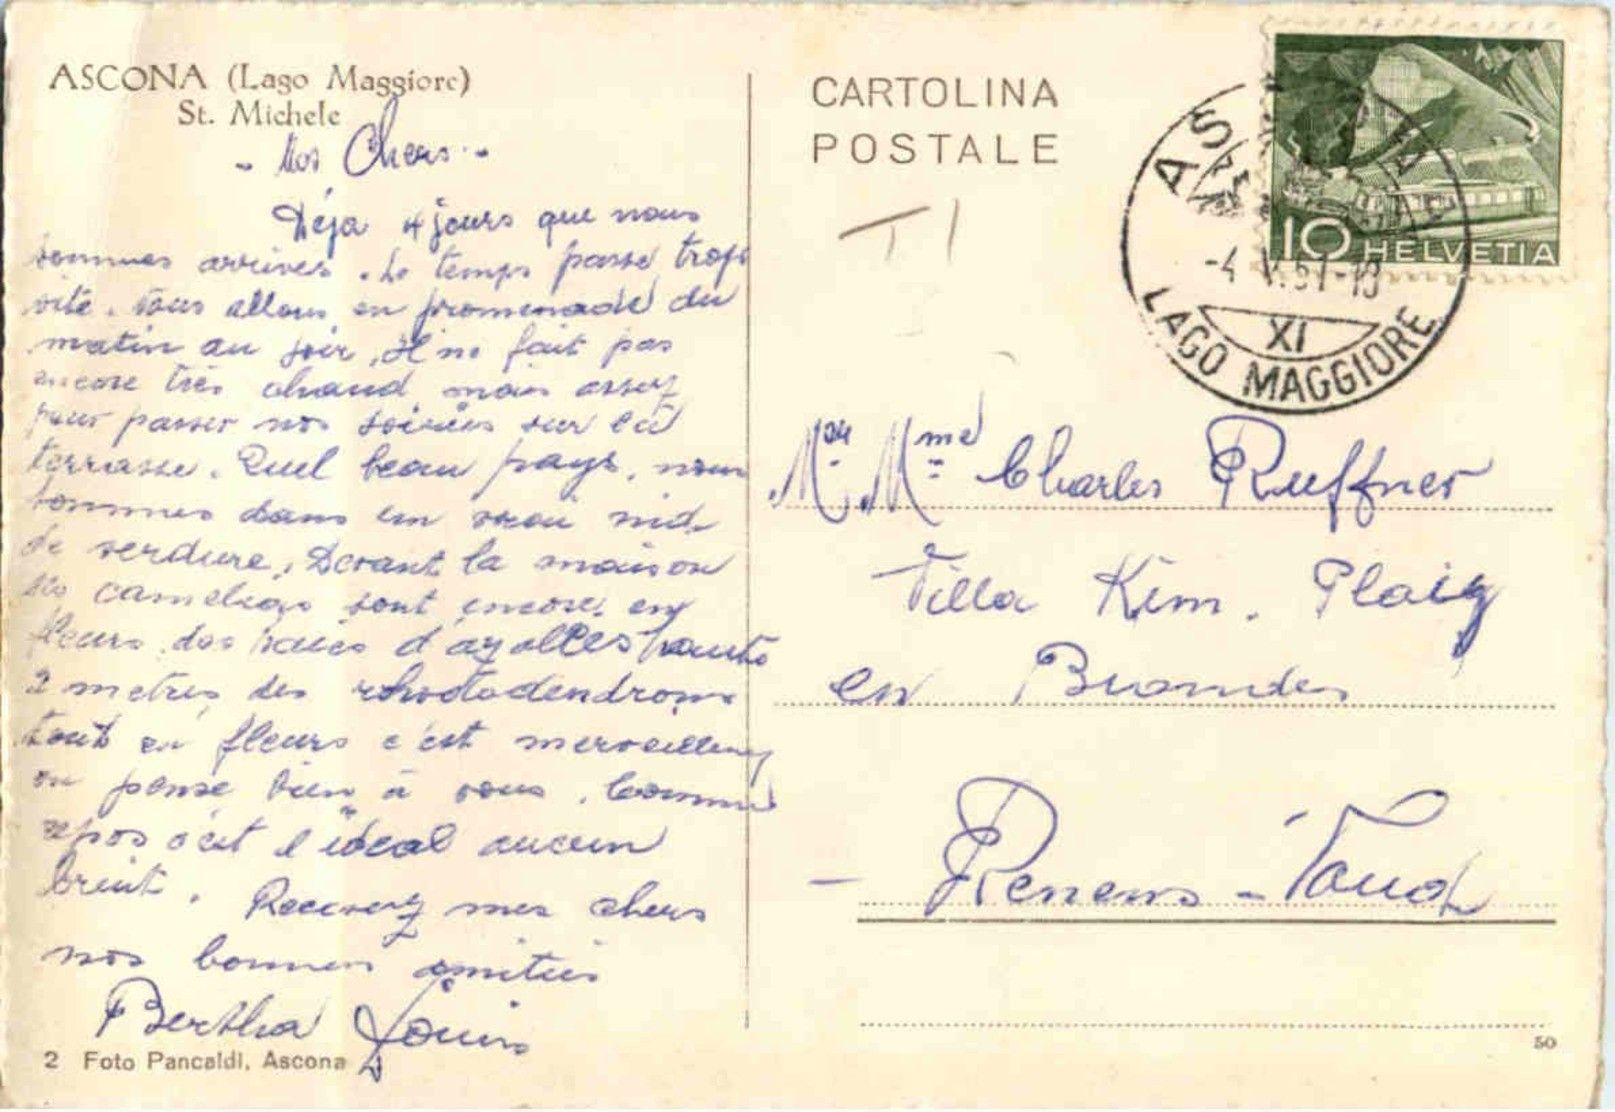 ASCONA (Lago Maggiore)
St. Michele
- Nos Chers -
Déja 4 jours que nous
sommes arrives. Le temps passe trop
vite. Nous allons en promenade du
matin au soir, il ne fait pas
encore très chaud mais assez
pour passer nos soirées sur la
terrasse. Quel beau pays, nous
sommes dans un vrai nid
de verdure. Devant la maison
les camelias sont encore en
fleurs des haies d'azallées hautes
2 metres des rhododendrons
tout en fleurs c'est merveilleux
on pense bien à vous. Comme
repos c'est l'idéal aucun
bruit. Recevez mes chers
nos bonnes amitiés
Bertha Louis
2 Foto Pancaldi, Ascona
CARTOLINA
POSTALE
T 1
10 HELVETIA
ASCONA
-4.V.51-18
XI
LAGO MAGGIORE
Mr. Mme Charles Ruffner
Villa Kim. Plaiz
en Brandes
- Renens - Vaud
50